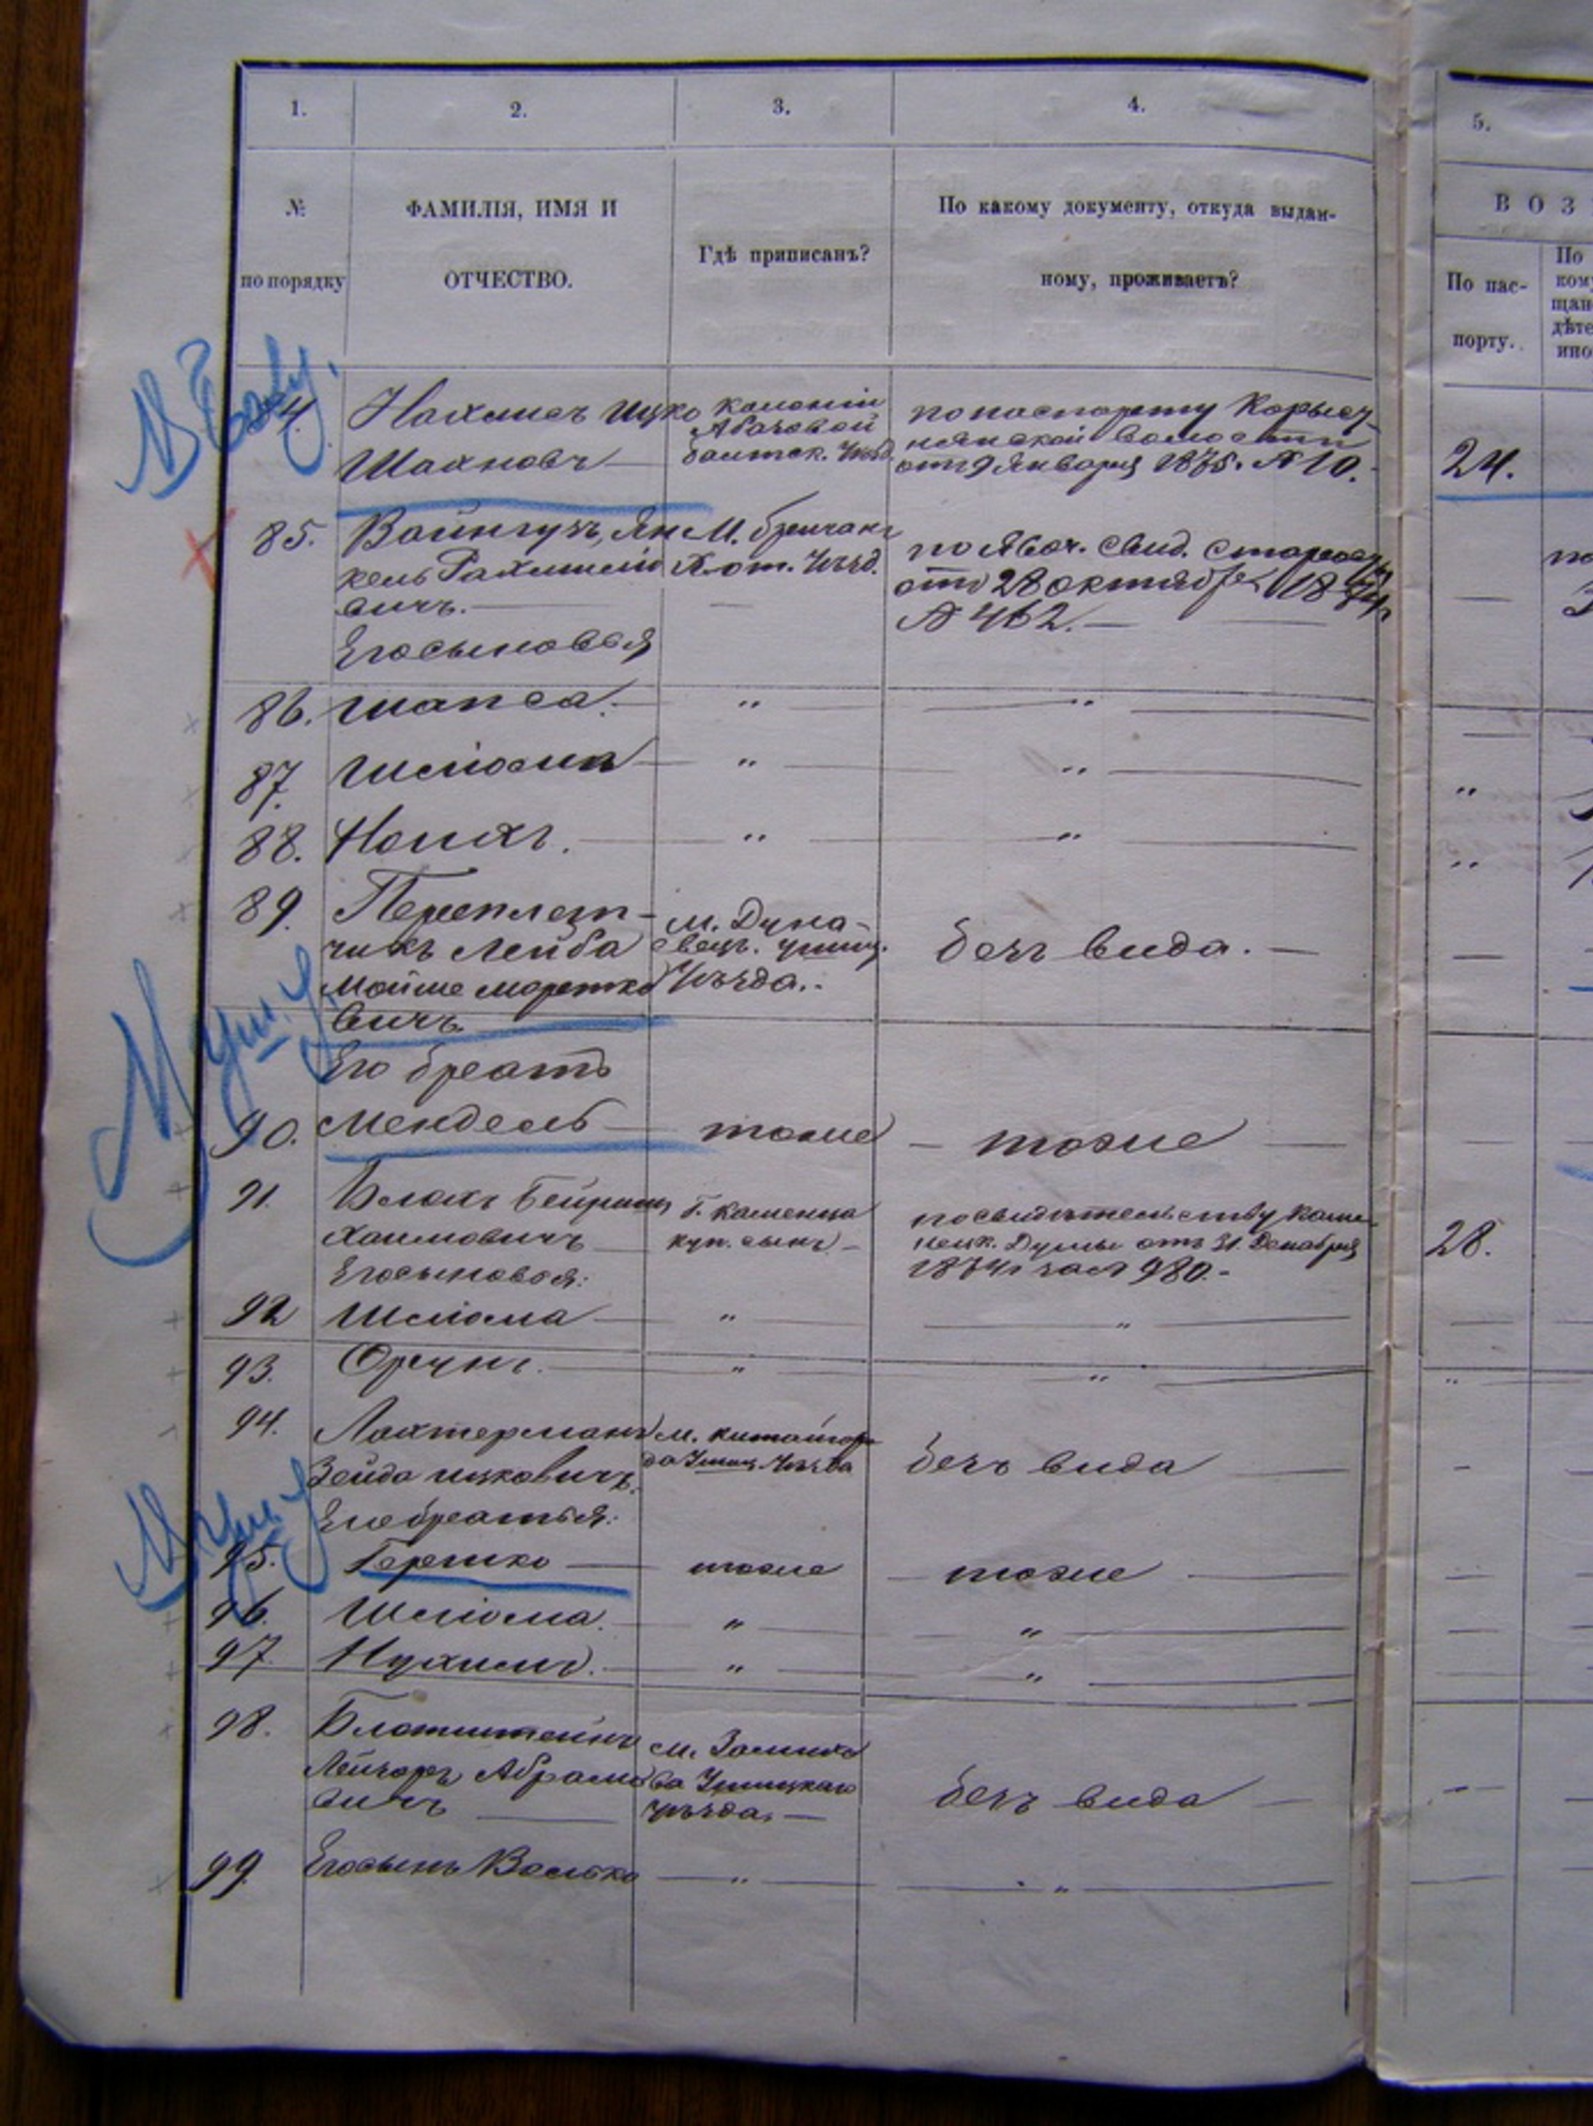 1.
2.
3.
4.
5.
№
по порядку
ФАМИЛІЯ, ИМЯ И
ОТЧЕСТВО.
Гдѣ приписанъ?
По какому документу, откуда выдан-
ному, проживаетъ?
ВОЗ
По пас-
порту.
По
ком
щан
дѣте
ино
4.
Ицко
Шахновъ
колоніи
балтск. Уѣзд.
по паспорту
волости
отъ 9 Января 1875. № 10.
24.
85.
Вайнгузъ, Ян
кель Рахмиле
вичъ.
Его сыновья
М. Бричанъ
Хот. Уѣзд.
по Явоч. свид.
отъ 28 октября 1874
№ 462.
по
86. Шапса. " "
87. Шліома " "
88. " "
89.
Переплет-
чикъ Лейба
Мойше Моретко
вичъ
м. Дуна-
евецъ. ушиц.
Уѣзда.
безъ вида.
Его братъ
90. Мендель тоже тоже
91.
Блахъ
Хаимовичъ
Его сыновья:
Г. Каменца
куп. сынъ
по свидѣтельству Каме
нецк. Думы отъ 31. Декабря
1874г за № 980.
28.
92 Шліома " "
93. " "
94.
Лахтерманъ
Зейда Ицковичъ.
Его братья:
м. Китайгоро
да Ушиц. Уѣзда
безъ вида
95. Гершко тоже тоже
96. Шліома. " "
97. Нухимъ. " "
98.
Блатштейнъ
Лейзоръ Абрамо
вичъ
м.
ва Ушицкаго
уѣзда,
безъ вида
99. Его сынъ Волько " "